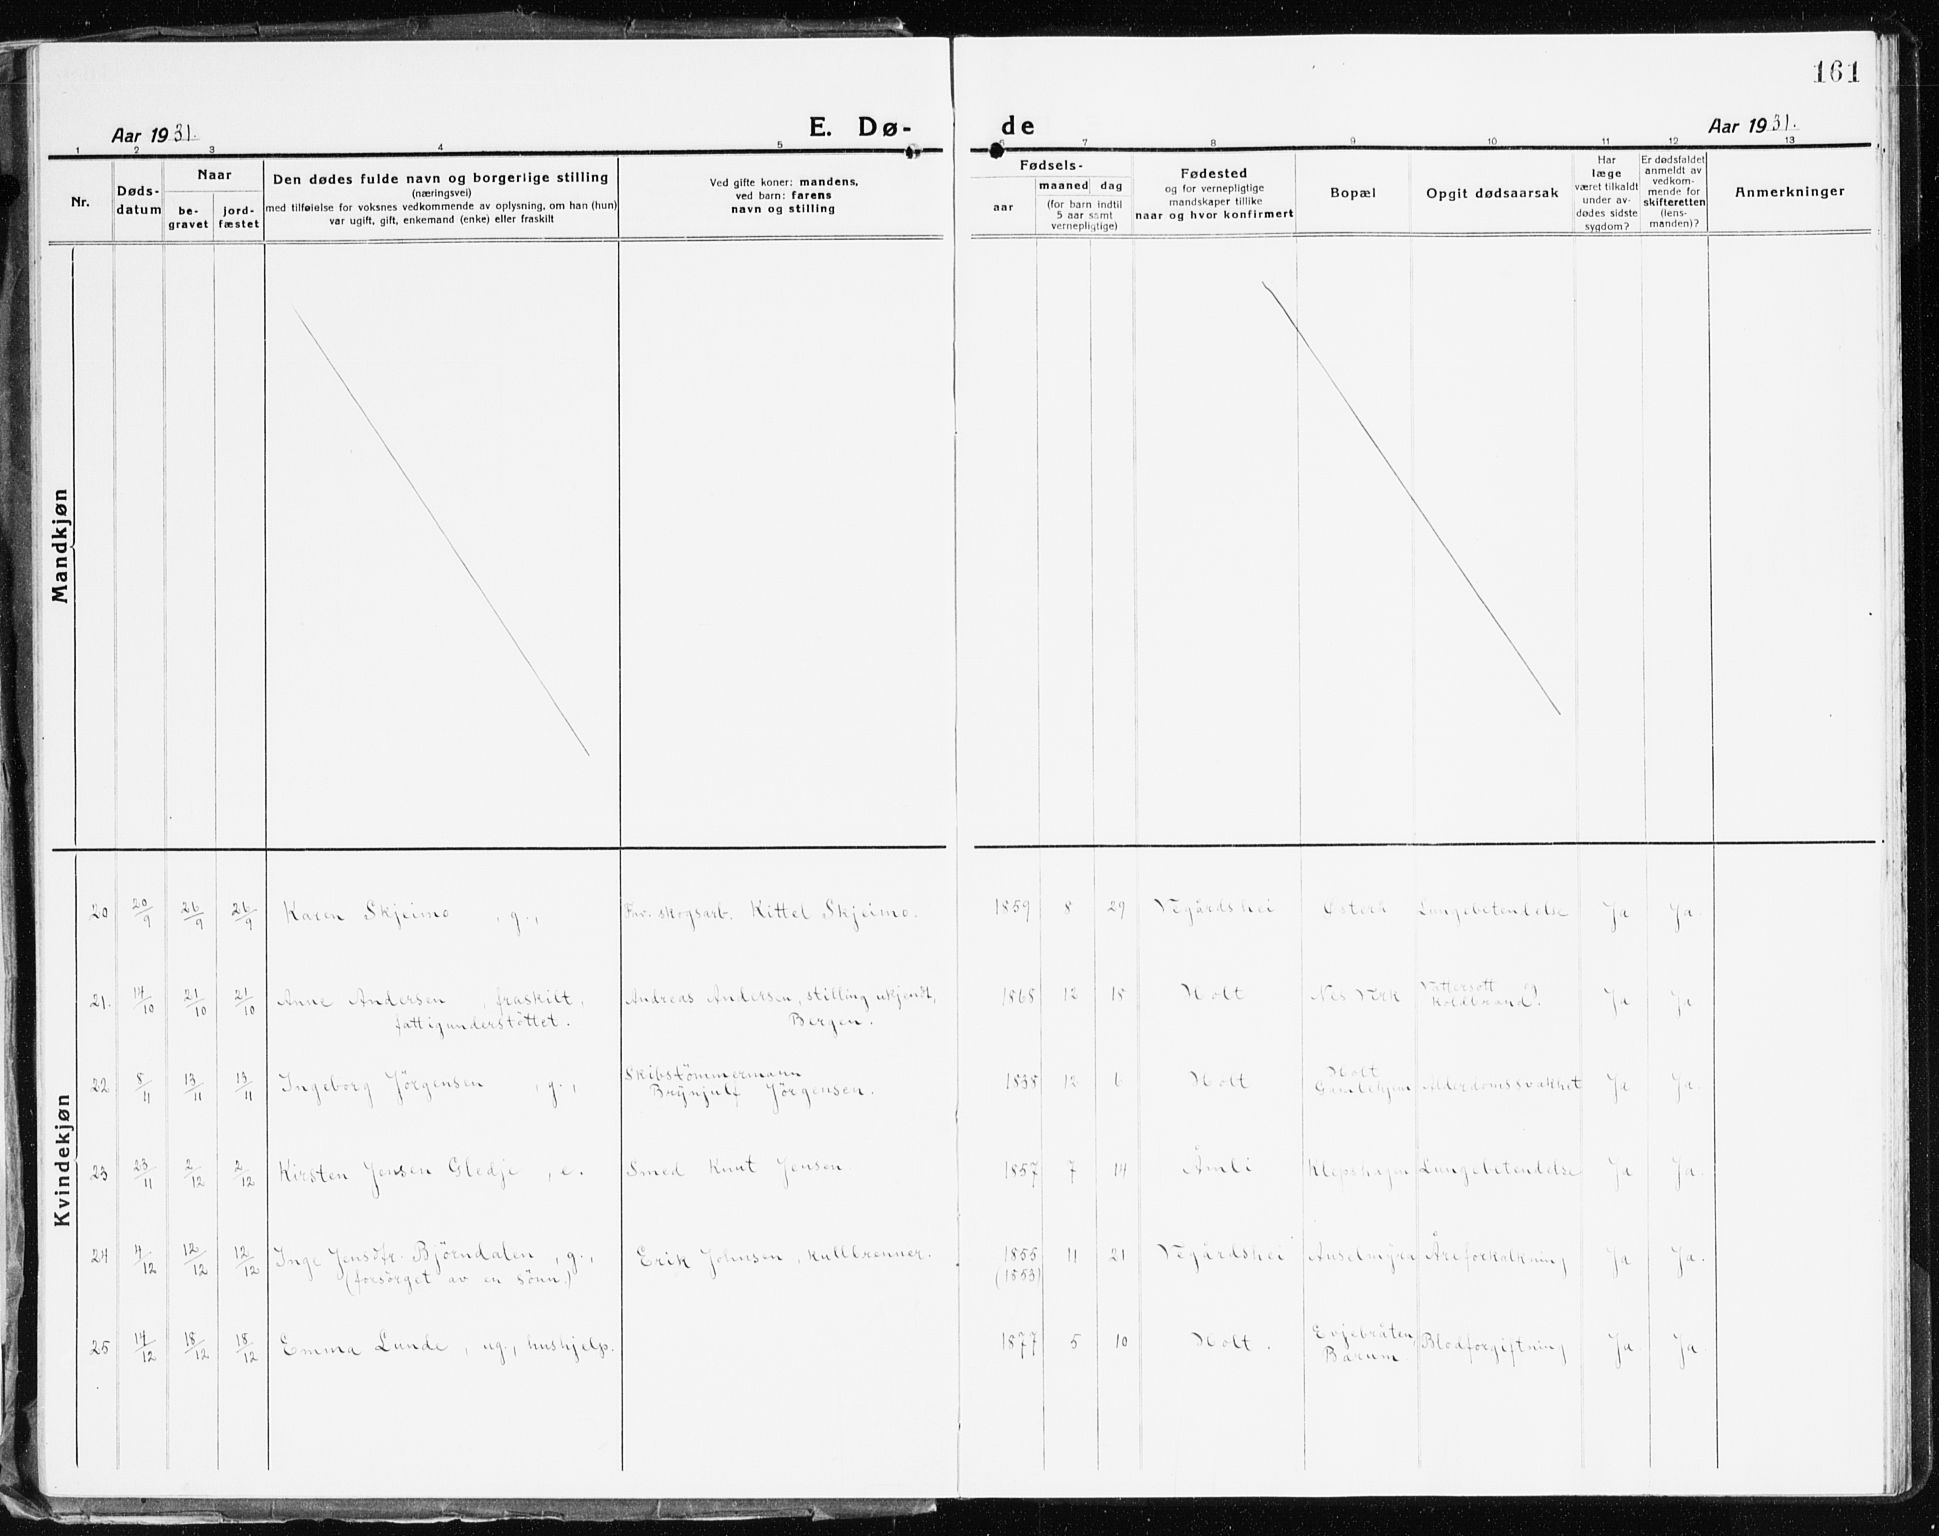 161
Aar 1931.
E. Dø-
de
Aar 1931.
1 2 3 4 5 6 7 8 9 10 11 12 13
Nr.
Døds-
datum
Naar
be-
gravet
jord-
fæstet
Den dødes fulde navn og borgerlige stilling
(næringsvei)
med tilføielse for voksnes vedkommende av oplysning, om han (hun)
var ugift, gift, enkemand (enke) eller fraskilt
Ved gifte koner: mandens,
ved barn: farens
navn og stilling
Fødsels-
aar
maaned dag
(for barn indtil
5 aar samt
vernepligtige)
Fødested
og for vernepligtige
mandskaper tillike
naar og hvor konfirmert
Bopæl
Opgit dødsaarsak
Har
læge
været tilkaldt
under av-
dødes sidste
sygdom?
Er dødsfaldet
anmeldt av
vedkom-
mende for
skifteretten
(lens-
manden)?
Anmerkninger
Mandkjøn
Kvindekjøn
20 20/9 26/9 26/9 Karen Skjeimo , g., Fav. skogsarb. Kittel Skjeimo. 1859 8 29 Vegårdshei Østerå Lungebetendelse Ja Ja.
21. 14/10 21/10 21/10 Anne Andersen , fraskilt, Andreas Andersen, stilling ukjendt, 1868 12 18 Holt Nes Verk Vattersott Ja Ja
fattigunderstöttet. Bergen. Koldbrand?.
22 8/11 13/11 13/11 Ingeborg Jörgensen , g., Skibstömmermann 1838 12 6 Holt Holt Alderdomssvakhet Ja Ja.
Brynjulf Jörgensen. Gamlehjem
23 23/11 2/12 2/12 Kirsten Jensen Gledje , e. Smed Knut Jensen. 1857 7 14 Åmli Klepshagn Lungebetendelse Ja Ja.
24 4/12 12/12 12/12 Inge Jensdtr. Björndalen , g., Erik Johnsen, kullbrenner. 1855 11 21 Vegårdshei Anselmyra Åreforkalkning Ja Ja.
(forsörget av en sönn.) (1853)
25 14/12 18/12 18/12 Emma Lunde , ug., hushjelp. 1877 5 10 Holt . Evjebråten, Blodforgiftning Ja. Ja.
Bærum.